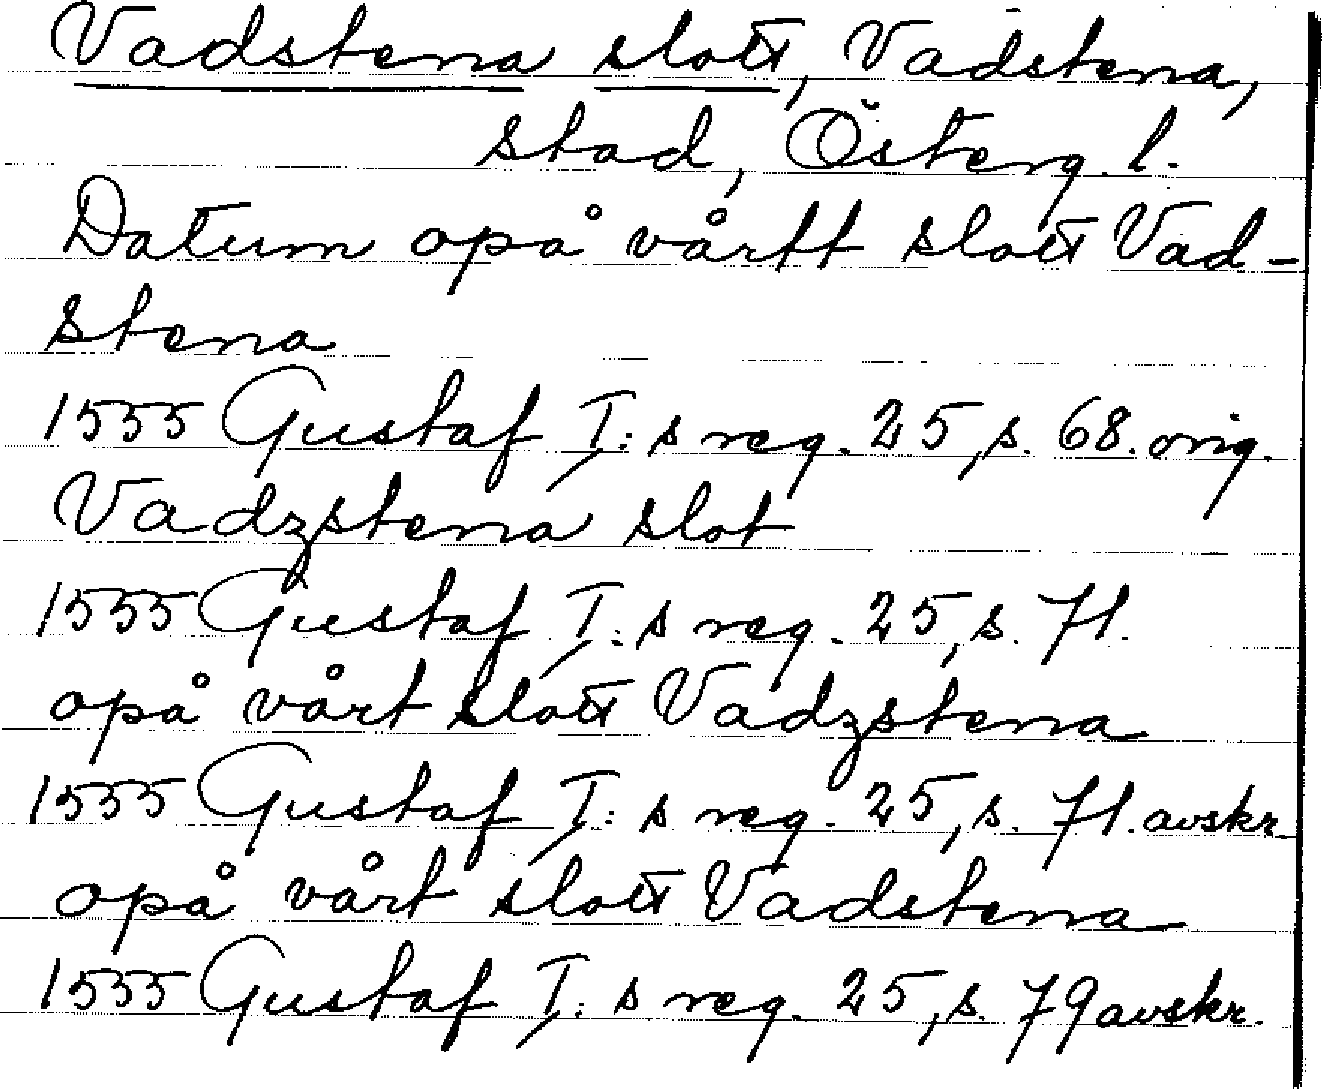 Vadstena slott, Vadstena,
stad, Österg. l.
Datum opå vårtt slott Vad-
stena
1555 Gustaf I:s reg. 25, s. 68. orig.
Vadzstena slot
1555 Gustaf I:s reg. 25, s. 71.
opå vårt slott Vadzstena
1555 Gustaf I:s reg. 25, s. 71. avskr.
opå vårt slott Vadstena
1555 Gustaf I:s reg. 25, s. 79 avskr.